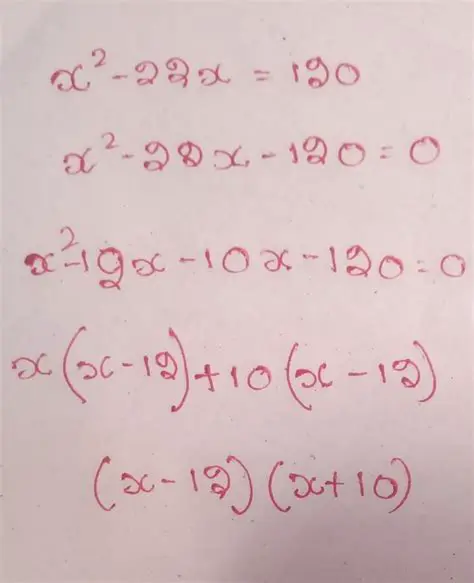 x² - 22x = 120
x² - 22x - 120 = 0
x² - 12x - 10x - 120 = 0
x(x - 12) + 10(x - 12)
(x - 12)(x + 10)